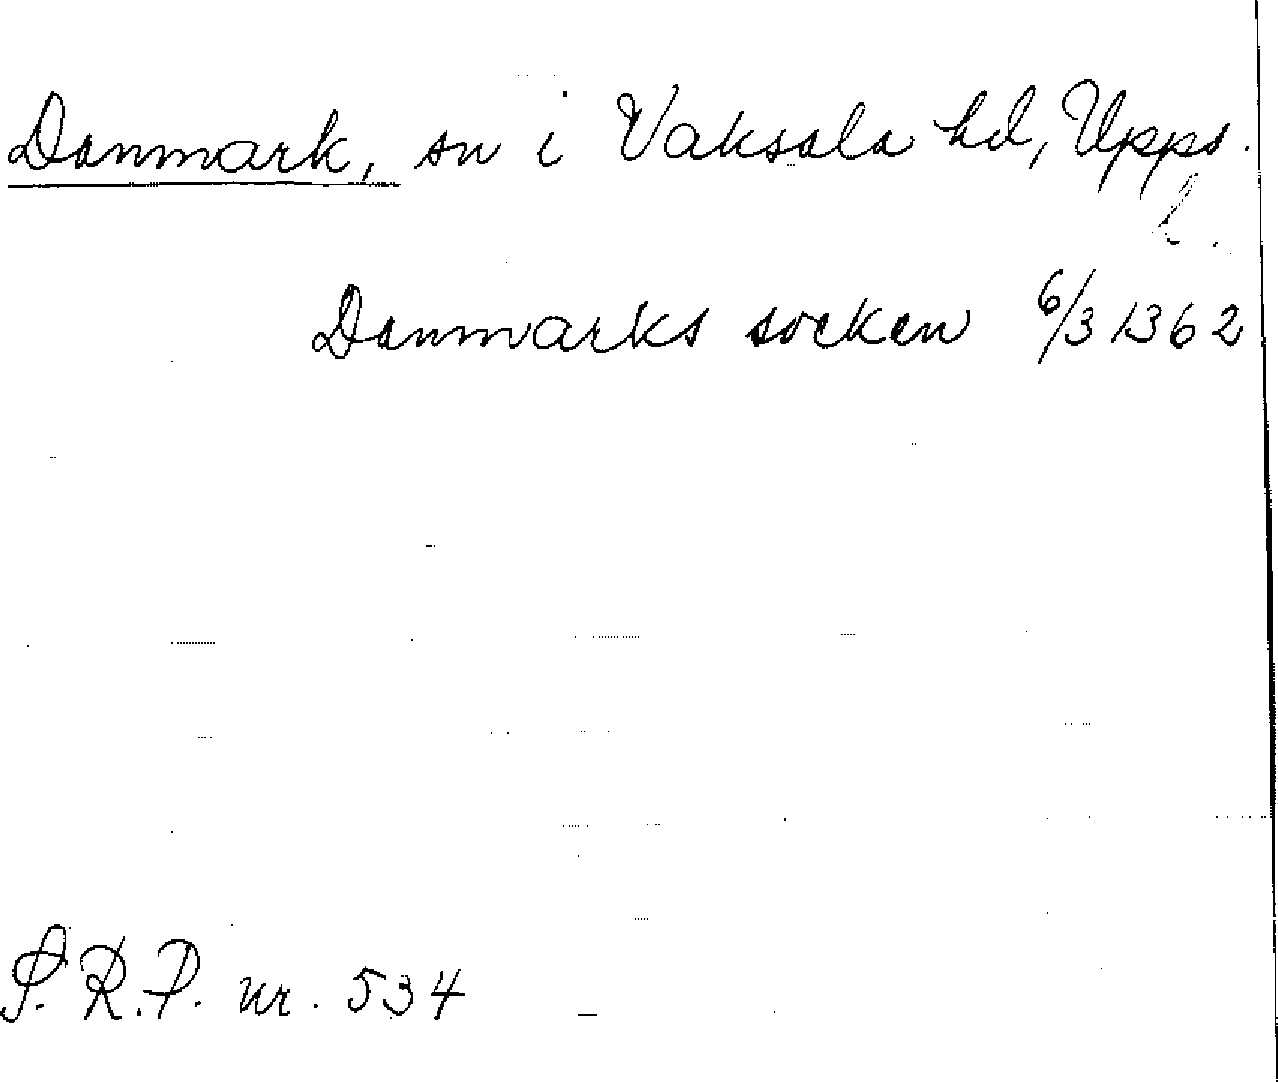 Danmark, sn i Vaksala hd, Upps.
l.
Danmarks socken 6/3 1362
S.R.P. nr. 534